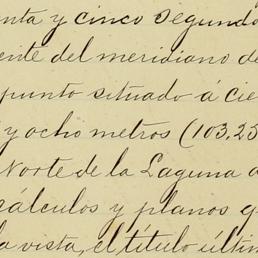 nta y cinco segundo
ente del meridiano de
punto situado á cie
y ocho metros (103,25
Norte de la Laguna a
cálculos y planos q
la vista, el título últim